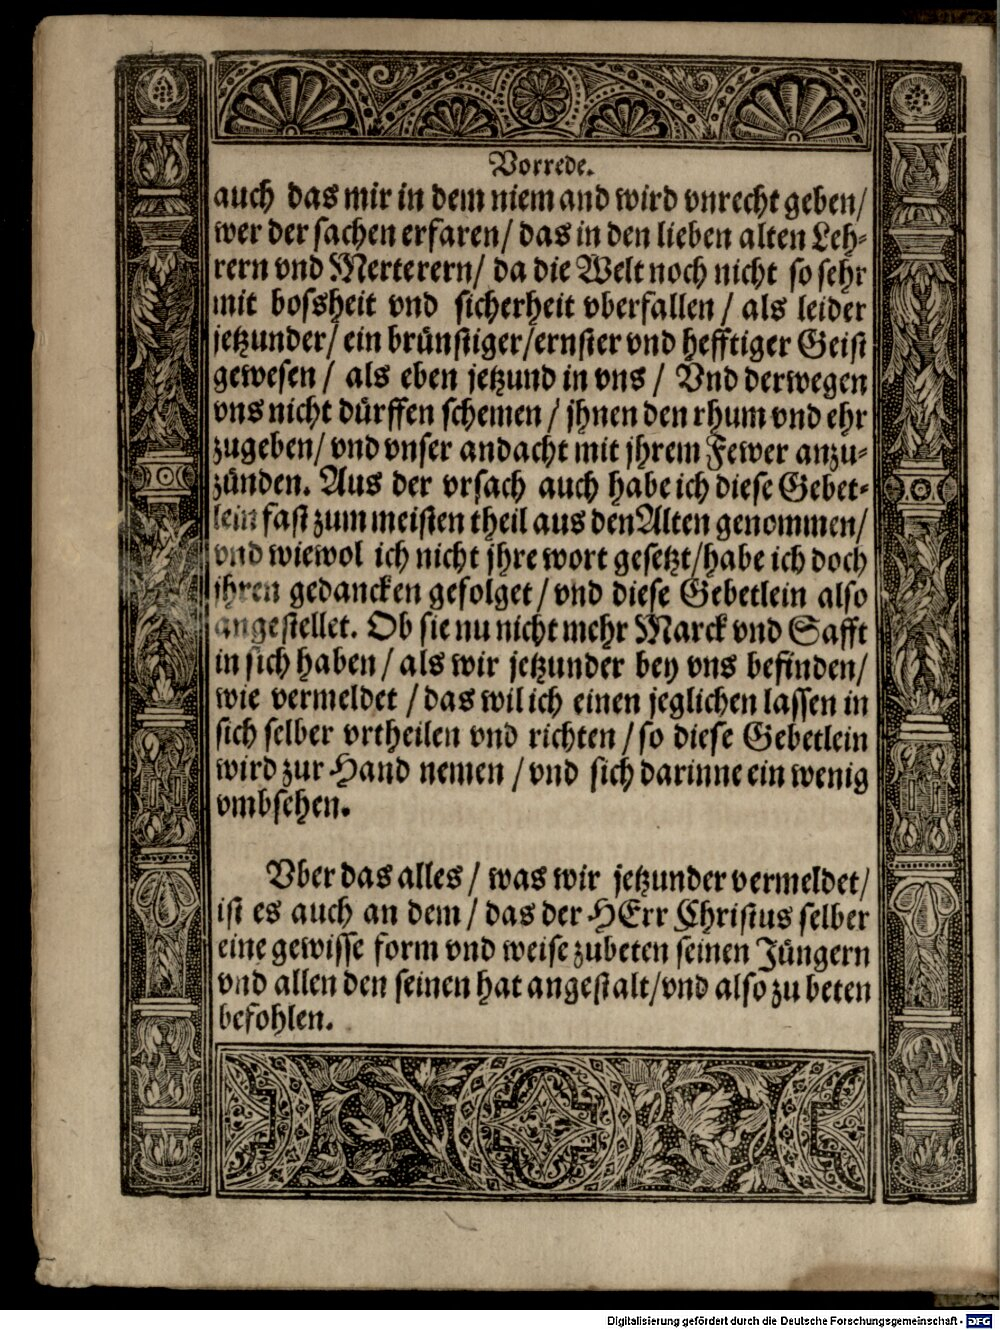 Vorrede.
auch das mir in dem niemand wird vnrecht geben/
wer der sachen erfaren/ das in den lieben alten Leh-
rern vnd Merterern/ da die Welt noch nicht so sehr
mit bossheit vnd sicherheit vberfallen / als leider
jetzunder/ ein brünstiger/ernster vnd hefftiger Geist
gewesen / als eben jetzund in vns / Vnd derwegen
vns nicht dürffen schemen / jhnen den rhum vnd ehr
zugeben/ vnd vnser andacht mit jhrem Fewer anzu-
zünden. Aus der vrsach auch habe ich diese Gebet-
lein fast zum meisten theil aus den Alten genommen/
vnd wiewol ich nicht jhre wort gesetzt/habe ich doch
jhren gedancken gefolget / vnd diese Gebetlein also
angestellet. Ob sie nu nicht mehr Marck vnd Safft
in sich haben / als wir jetzunder bey vns befinden/
wie vermeldet / das wil ich einen jeglichen lassen in
sich selber vrtheilen vnd richten / so diese Gebetlein
wird zur Hand nemen / vnd sich darinne ein wenig
vmbsehen.
Vber das alles / was wir jetzunder vermeldet/
ist es auch an dem / das der HErr Christus selber
eine gewisse form vnd weise zubeten seinen Jüngern
vnd allen den seinen hat angestalt/vnd also zu beten
befohlen.
Digitalisierung gefördert durch die Deutsche Forschungsgemeinschaft - DFG